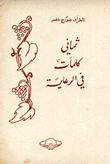 المطران جورج خضر
ثماني
كلمات
في الرعاية